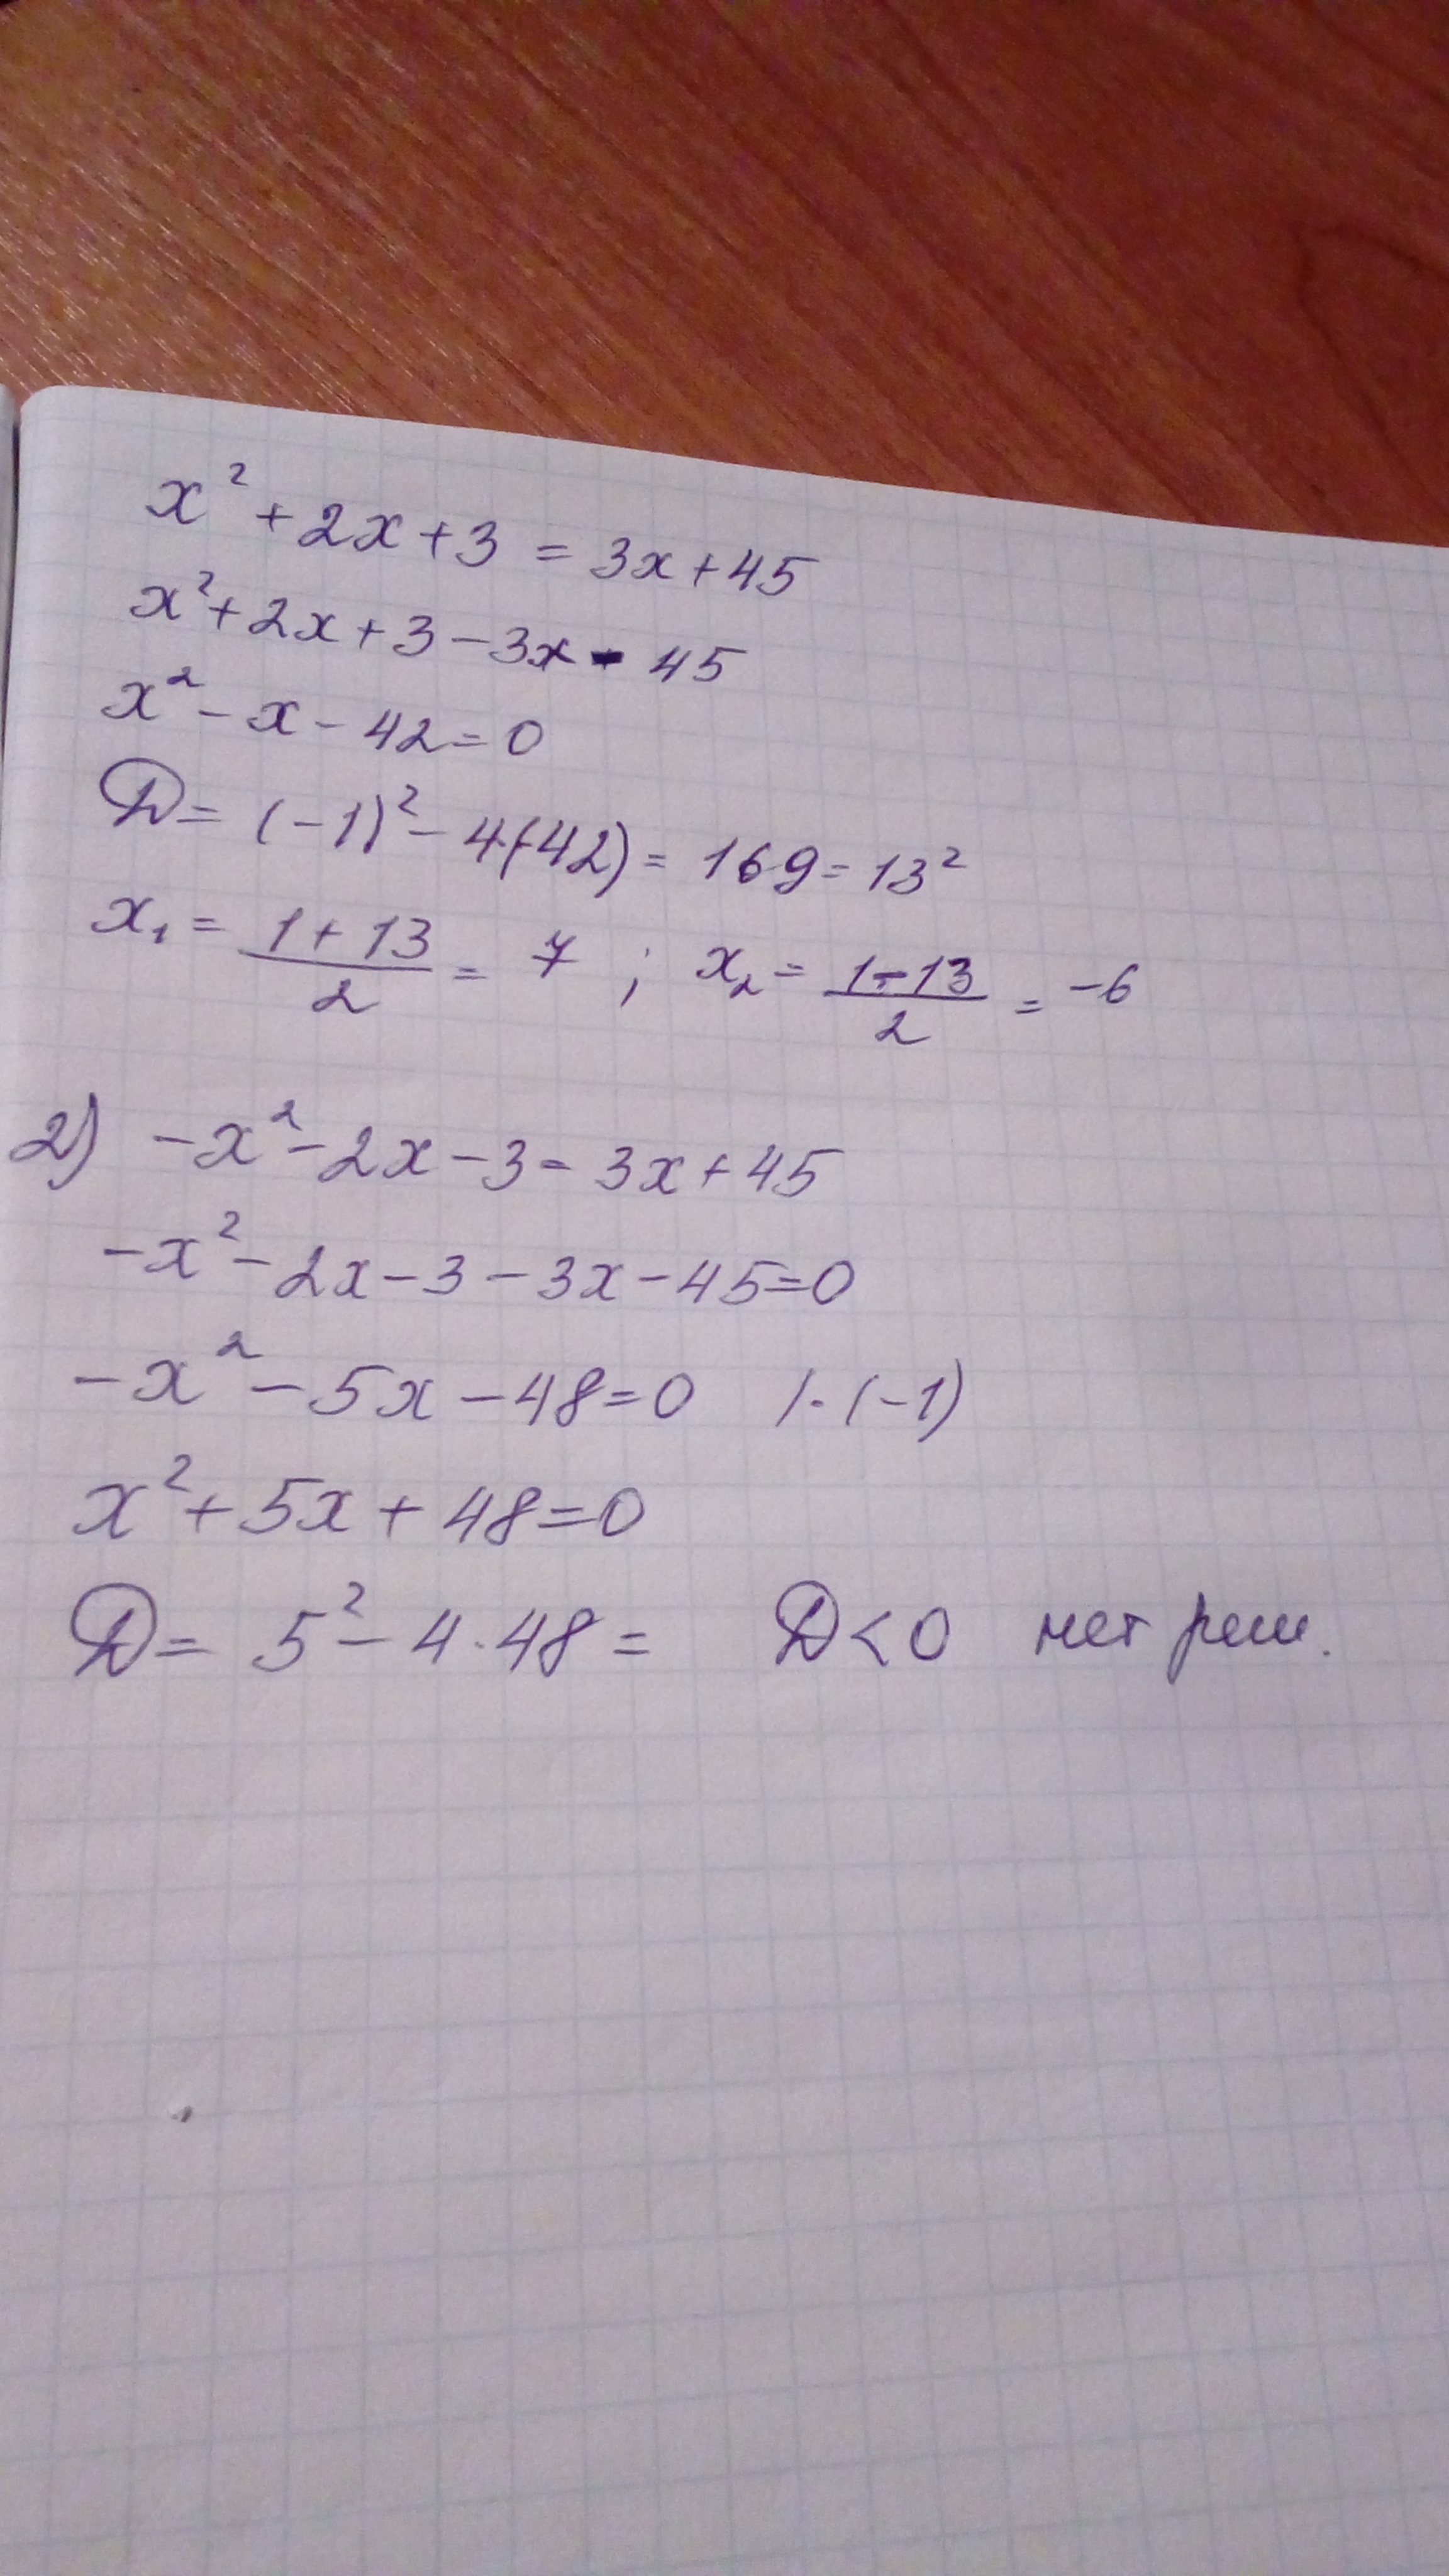 x² + 2x + 3 = 3x + 45
x² + 2x + 3 − 3x − 45
x² − x − 42 = 0
D = (−1)² − 4·(−42) = 169 = 13²
x₁ = (1 + 13)/2 = 7 ; x₂ = (1 − 13)/2 = −6
2) −x² − 2x − 3 = 3x + 45
−x² − 2x − 3 − 3x − 45 = 0
−x² − 5x − 48 = 0 /·(−1)
x² + 5x + 48 = 0
D = 5² − 4·48 = D < 0 нет реш.